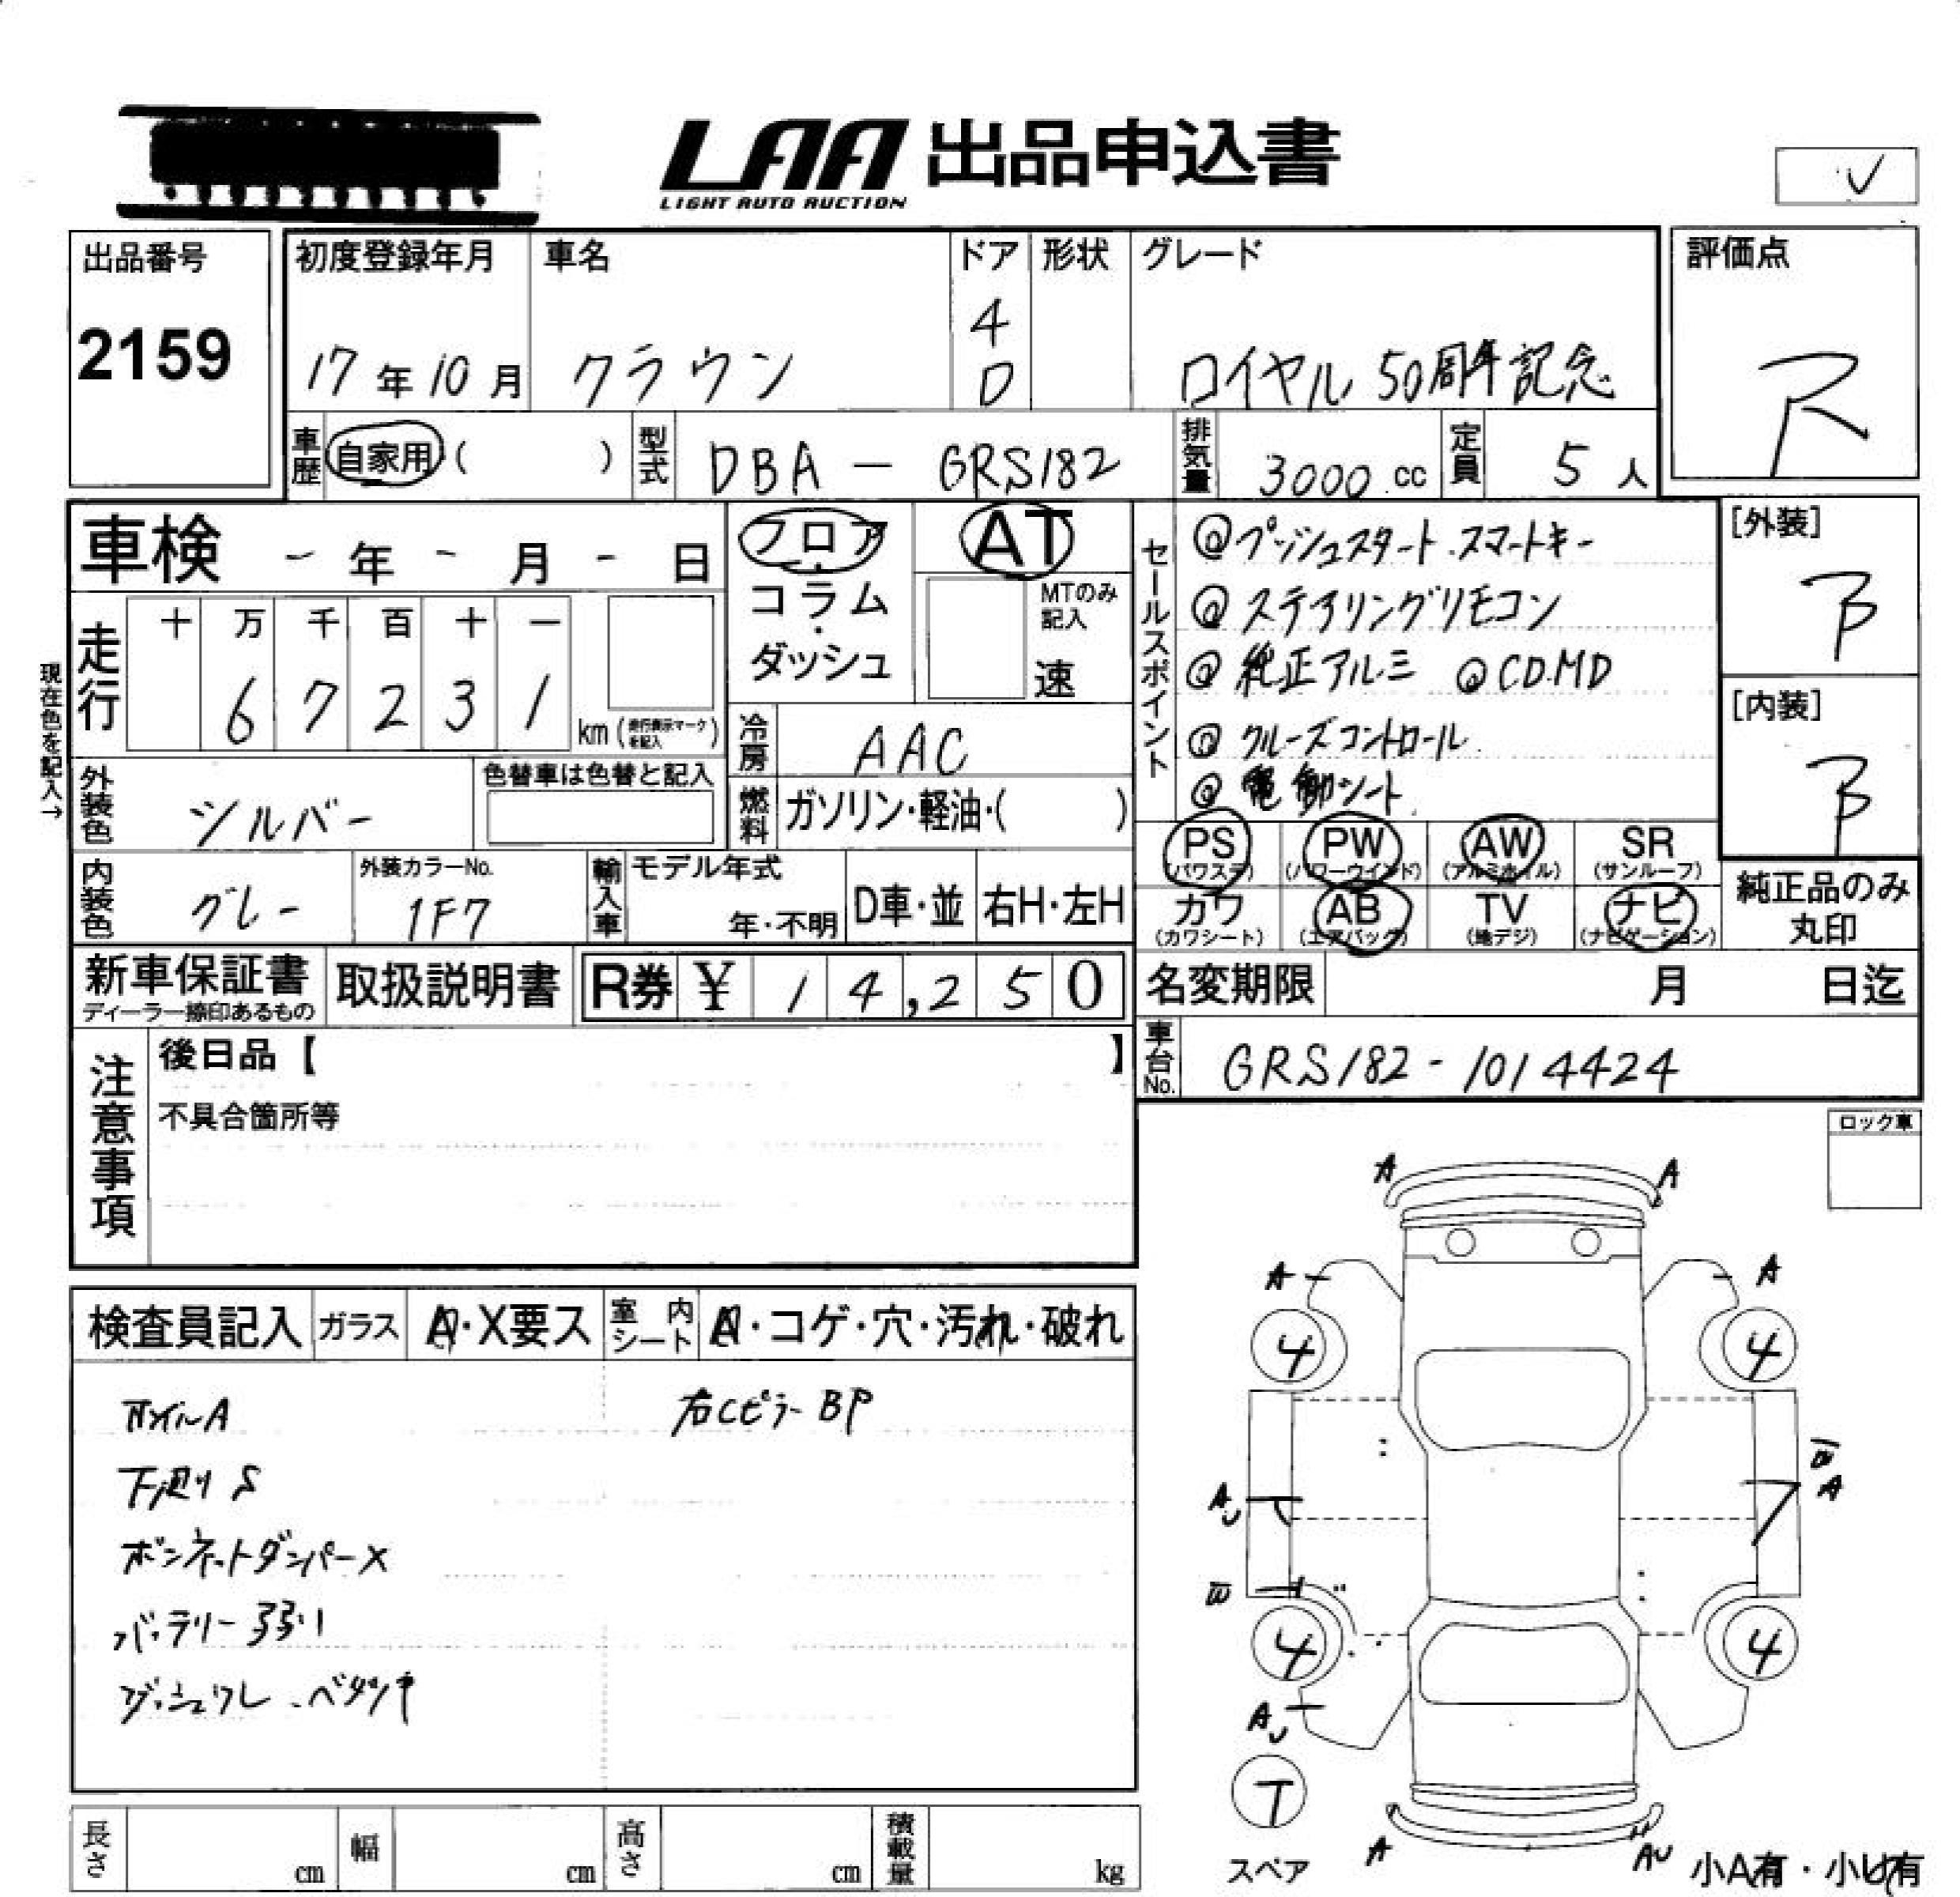 LAA 出品申込書
LIGHT AUTO AUCTION
✓
出品番号
2159
初度登録年月
17年10月
車名
クラウン
ドア
4
D
形状
グレード
ロイヤル 50周年記念
評価点
R
車歴
自家用 ( )
型式
DBA - GRS182
排気量
3000 cc
定員
5 人
車検 - 年 - 月 - 日
フロア
コラム
・
ダッシュ
AT
MTのみ
記入
速
セールスポイント
@プッシュスタート.スマートキー
@ステアリングリモコン
@純正アルミ @CD.MD
@クルーズコントロール
@電動シート
[外装]
B
[内装]
B
現在色を記入→
走行
十 万 千 百 十 一
6 7 2 3 1
km (走行表示マークを記入)
冷房
AAC
外装色
シルバー
色替車は色替と記入
燃料
ガソリン・軽油・( )
PS
(パワステ)
PW
(パワーウインド)
AW
(アルミホイル)
SR
(サンルーフ)
内装色
グレー
外装カラーNo.
1F7
輸入車
モデル年式
年・不明
D車・並
右H・左H
カワ
(カワシート)
AB
(エアバッグ)
TV
(地デジ)
ナビ
(ナビゲーション)
純正品のみ
丸印
新車保証書
ディーラー捺印あるもの
取扱説明書
R券 ¥ 1 4,2 5 0
名変期限 月 日迄
車台No.
GRS182-1014424
注意事項
後日品【 】
不具合箇所等
ロック車
検査員記入
ガラス
A・X要ス
室内シート
A・コゲ・穴・汚れ・破れ
右Cピラー BP
下廻り S
ボンネットダンパー X
バッテリー弱い
A A
A A
4 4
B
A
A
U
B
4 4
A
U
T
スペア
A
AU
小A有・小U有
長さ cm
幅 cm
高さ cm
積載量 kg